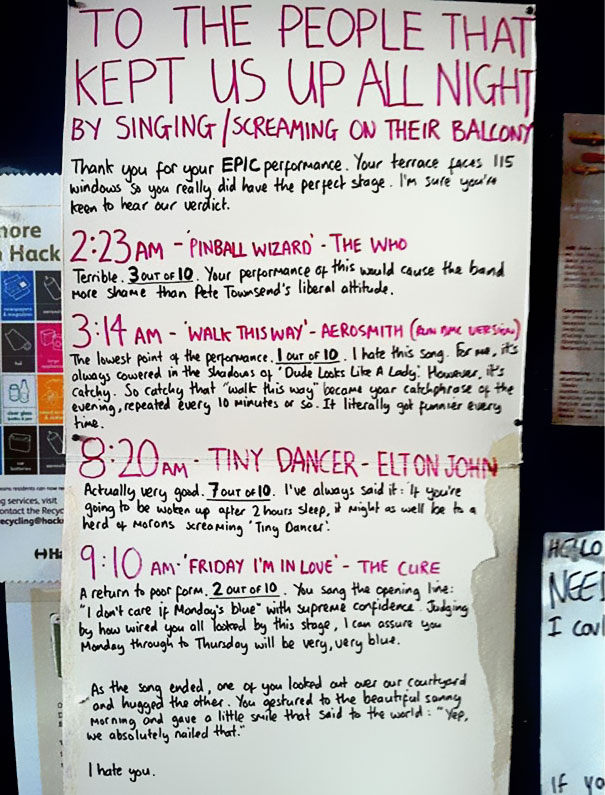 TO THE PEOPLE THAT
KEPT US UP ALL NIGHT
BY SINGING/SCREAMING ON THEIR BALCONY
Thank you for your EPIC performance. Your terrace faces 115
windows so you really did have the perfect stage. I'm sure you're
keen to hear our verdict.
2:23AM - 'PINBALL WIZARD' - THE WHO
Terrible. 3 out of 10. Your performance of this would cause the band
more shame than Pete Townsend's liberal attitude.
3:14 AM - 'WALK THIS WAY' - AEROSMITH (RUN DMC VERSION)
The lowest point of the performance. 1 out of 10. I hate this song. For me, it's
always cowered in the shadows of 'Dude Looks Like A Lady'. However, it's
catchy. So catchy that "walk this way" became your catchphrase of the
evening, repeated every 10 minutes or so. It literally got funnier every
time.
8:20AM - TINY DANCER - ELTON JOHN
Actually very good. 7 out of 10. I've always said it: If you're
going to be woken up after 2 hours sleep, it might as well be to a
herd of morons screaming 'Tiny Dancer'.
9:10 AM - 'FRIDAY I'M IN LOVE' - THE CURE
A return to poor form. 2 out of 10. You sang the opening line:
"I don't care if Monday's blue" with supreme confidence. Judging
by how wired you all looked by this stage, I can assure you
Monday through to Thursday will be very, very blue.
As the song ended, one of you looked out over our courtyard
and hugged the other. You gestured to the beautiful sunny
morning and gave a little smile that said to the world: "Yep,
we absolutely nailed that."
I hate you.
more
Hack
g services, visit
ontact the Recyc
ecycling@hack
HELLO
NEE
I coul
If yo